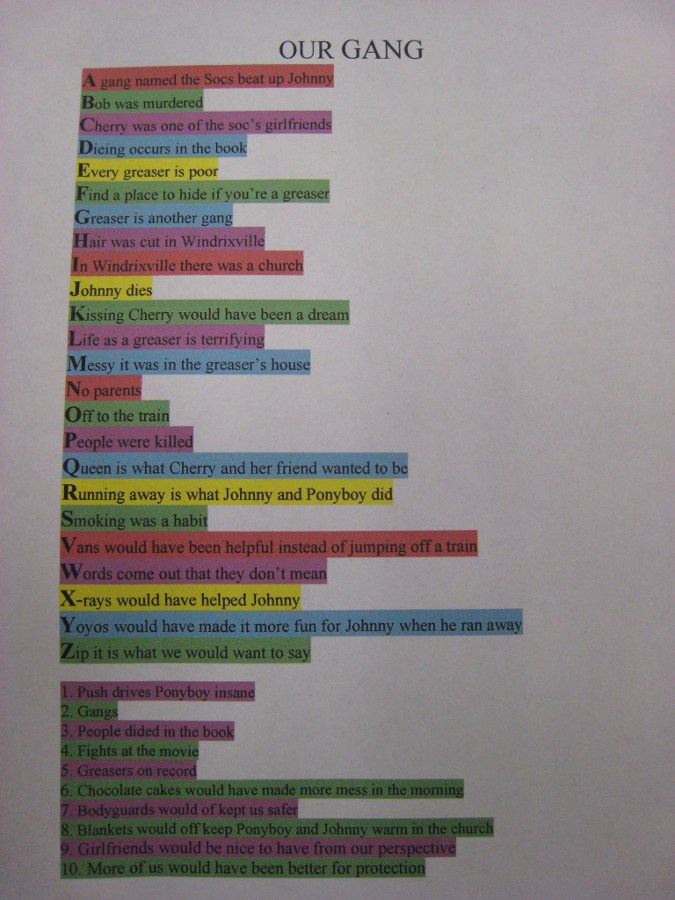 OUR GANG
A gang named the Socs beat up Johnny
Bob was murdered
Cherry was one of the soc's girlfriends
Dieing occurs in the book
Every greaser is poor
Find a place to hide if you're a greaser
Greaser is another gang
Hair was cut in Windrixville
In Windrixville there was a church
Johnny dies
Kissing Cherry would have been a dream
Life as a greaser is terrifying
Messy it was in the greaser's house
No parents
Off to the train
People were killed
Queen is what Cherry and her friend wanted to be
Running away is what Johnny and Ponyboy did
Smoking was a habit
Vans would have been helpful instead of jumping off a train
Words come out that they don't mean
X-rays would have helped Johnny
Yoyos would have made it more fun for Johnny when he ran away
Zip it is what we would want to say
1. Push drives Ponyboy insane
2. Gangs
3. People dided in the book
4. Fights at the movie
5. Greasers on record
6. Chocolate cakes would have made more mess in the morning
7. Bodyguards would of kept us safer
8. Blankets would off keep Ponyboy and Johnny warm in the church
9. Girlfriends would be nice to have from our perspective
10. More of us would have been better for protection